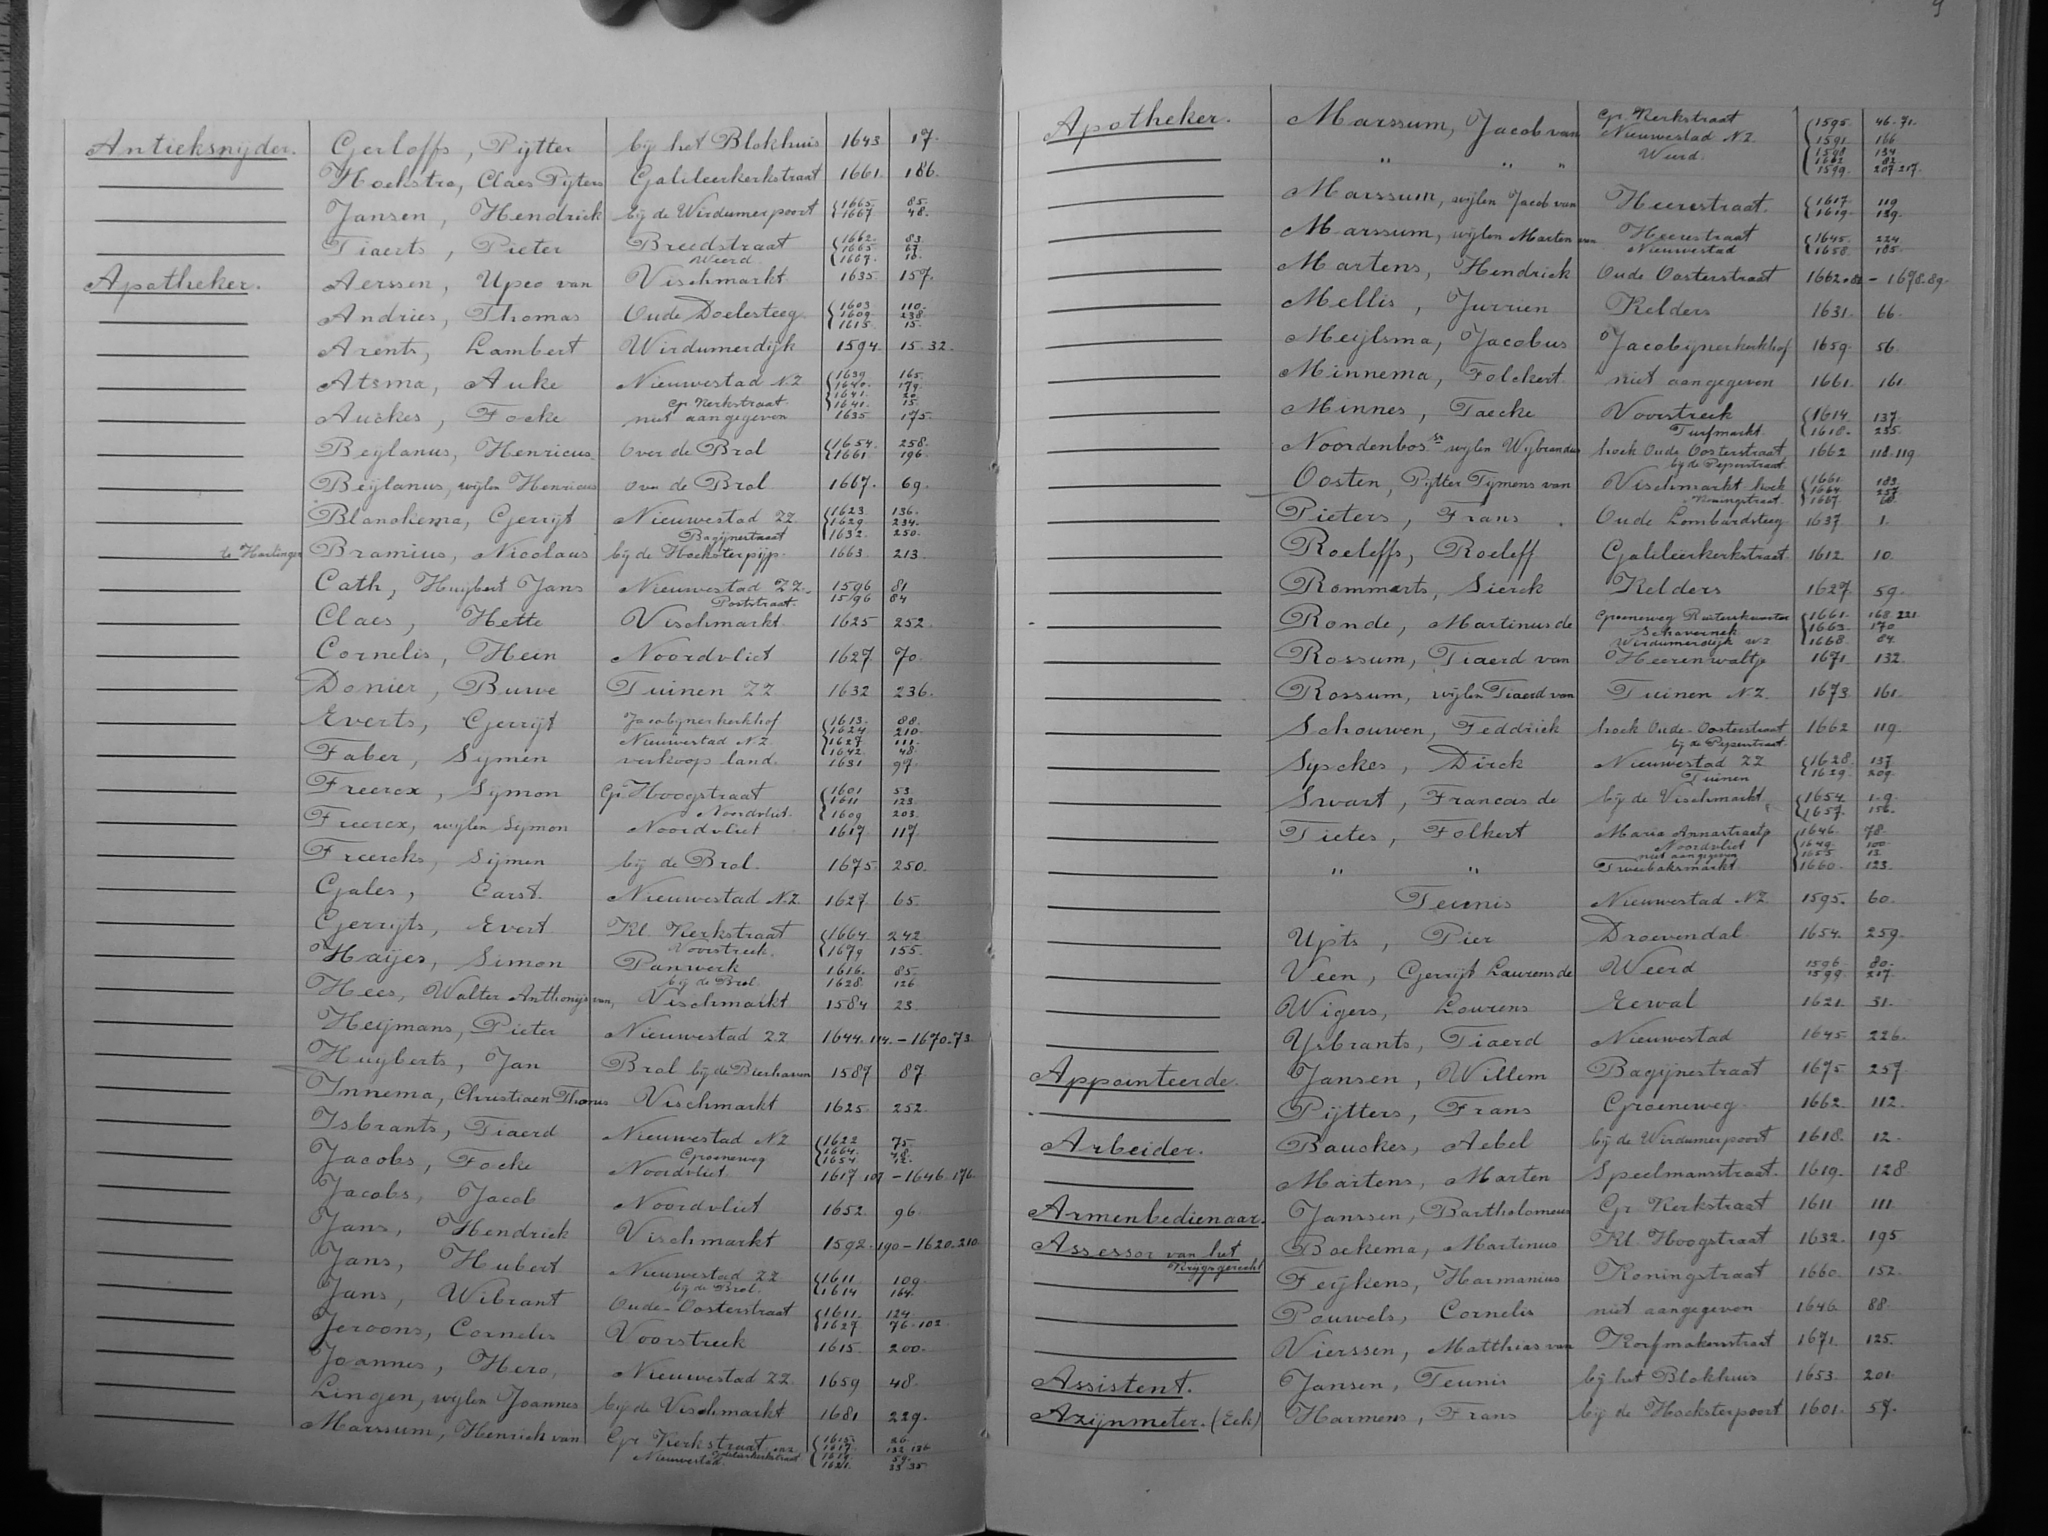 Antieksnijder. Gerloffs, Pijtter bij het Blokhuis 1643 17.
Hoekstra, Claes Pijters Galileërkerkstraat 1661. 186.
Jansen, Hendrick bij de Wirdumerpoort 1665. 85.
1667 48.
Tiaerts, Pieter Breedstraat 1662. 83.
1665 67.
Weerd. 1667. 18.
Apotheker. Aerssen, Upeo van Vischmarkt 1635. 157.
Andries, Thomas Oude Doelesteeg. 1603 110.
1609. 238
1615. 15.
Arents, Lambert Wirdumerdijk 1594. 15.32.
Atsma, Auke Nieuwestad N.Z 1639. 165.
1640. 179.
1641. 20
Gr Kerkstraat. 1641. 15.
Auckes, Focke niet aangegeven 1635 175.
Beylanus, Henricus over de Brol 1654. 258.
1661. 196.
Beijlanus, wijlen Henricus over de Brol 1667. 69.
Blanckema, Gerrijt Nieuwestad ZZ 1623. 136.
1629. 234.
Bagijnestraat 1632. 250.
te Harlingen Bramius, Nicolaus bij de Hoeksterpijp. 1663. 213.
Cath, Huijbert Jans Nieuwestad ZZ. 1596 81
Poststraat. 1596 84
Claes, Hette Vischmarkt. 1625 252.
Cornelis, Hein Noordvliet 1627. 70.
Donier, Buwe Tuinen ZZ 1632 236.
Everts, Gerrijt Jacobijnerkerkhof 1613. 88.
1624 210.
Nieuwestad NZ. 1627 111.
1642. 48.
Faber, Symen verkoop land. 1631 97.
Freerex, Symon Gr Hoogstraat 1601 53.
1611 123.
Noordvliet. 1609 203.
Freerex, wijlen Symon Noordvliet 1617. 117.
Freercks, Sijmen bij de Brol. 1675. 250.
Gales, Carst. Nieuwestad NZ 1627. 65.
Gerrijts, Evert Kl. Kerkstraat 1664. 242
Voorstreek. 1679 155.
Haijes, Simon Panwerk 1616. 85.
bij de Brol. 1628. 126
Hees, Walter Anthonijs van, Vischmarkt 1584 23.
Heijmans, Pieter Nieuwestad ZZ 1644. 114. – 1670.73.
Huijberts, Jan Brol bij de Bierhaven 1587 87
Innema, Christiaen Thomes Vischmarkt 1625 252.
Isbrants, Tiaerd Nieuwestad NZ 1622 75.
1664. 48.
Groeneweg 1654. 12.
Jacobs, Focke Noordvliet. 1617. 107 – 1646. 176.
Jacobs, Jacob Noordvliet 1652. 96.
Jans, Hendrick Vischmarkt 1592. 190 – 1620. 210.
Jans, Hubert Nieuwestad ZZ 1611 109.
bij de Brol. 1614 164.
Jans, Wibrant Oude-Oosterstraat 1611. 124
1627. 76.102.
Jeroons, Cornelis Voorstreek 1615. 200.
Joannes, Hero, Nieuwestad ZZ. 1659 48.
Lingen, wijlen Joannes bij de Vischmarkt 1681 229.
Marssum, Henrick van Gr. Kerkstraat 1615. 26
1617. 132 136
1619. 59.
Nieuwestad. 1621. 33 35
Apotheker. Marssum, Jacob van Gr. Kerkstraat 1595. 46.71.
Nieuwestad NZ. 1591. 166
Weerd. 1598 134
" " " 1602 82
1599. 207.217.
Marssum, wijlen Jacob van Heerestraat. 1617. 119
1619. 129.
Marssum, wijlen Marten van Heerestraat 1645. 224.
Nieuwestad 1658. 185.
Martens, Hendrick Oude Oosterstraat 1662.82 – 1678.89.
Mellis, Jurrien Kelders 1631. 66.
Meijlsma, Jacobus Jacobijnerkerkhof 1659. 56.
Minnema, Folckert. niet aangegeven 1661. 161.
Minnes, Taecke Voorstreek 1614. 137.
Turfmarkt. 1618. 255.
Noordenbos. wijlen Wijbrandus hoek Oude Oosterstraat 1662 118.119
bij de Peperstraat.
Oosten, Pijtter Tymens van Vischmarkt hoek 1661. 182.
1664. 257
Koningstraat. 1667. 68.
Pieters, Frans Oude Lombardsteeg. 1637. 1.
Roeleffs, Roeleff Galileerkerkstraat 1612. 10.
Rommerts, Sierck Kelders 1627. 59.
Ronde, Martinus de Groeneweg Ruiterskwartier 1661. 168.221
Schavernek 1662. 170
Wirdumerdijk WZ 1668. 84.
Rossum, Tiaerd van Heerenwaltje 1671. 132.
Rossum, wijlen Tiaerd van Tuinen NZ. 1673. 161.
Schouwen, Feddrick hoek Oude-Oosterstraat 1662 119.
bij de Peperstraat.
Syckes, Dirck Nieuwestad ZZ 1628. 137
Tuinen 1629. 209.
Swart, Francois de bij de Vischmarkt 1654. 1.9.
1657. 156.
Tietes, Folkert Maria Annastraatje 1646. 78.
Noordvliet 1649. 100.
niet aangegeven 1655 12
" " Tweebaksmarkt. 1660. 123.
Teunis Nieuwestad NZ 1595. 60.
Upts, Pier Droevendal. 1654. 259.
Veen, Gerrijt Laurens de Weerd 1596. 80.
1599. 217.
Wigers, Lourens Eewal 1621. 31.
Ysbrants, Tiaerd Nieuwestad 1645 226.
Appointeerde. Jansen, Willem Bagijnestraat 1675 257
Pijtters, Frans Groeneweg. 1662. 112.
Arbeider. Bauckes, Aebel bij de Wirdumerpoort 1618. 12.
Martens, Marten Speelmansstraat. 1619. 128
Armenbedienaar. Janssen, Bartholomeus Gr Kerkstraat 1611 111.
Assessor van het Boekema, Martinus Kl. Hoogstraat 1632. 195
Krijgsgerecht
Feijkens, Harmanius Koningstraat 1660. 152.
Pouwels, Cornelis niet aangegeven 1646. 88.
Vierssen, Matthias van Korfmakersstraat 1671. 125.
Assistent. Jansen, Teunis bij het Blokhuis 1653. 201.
Azijnmeter. (Eek) Harmens, Frans bij de Hoeksterpoort 1601. 57.